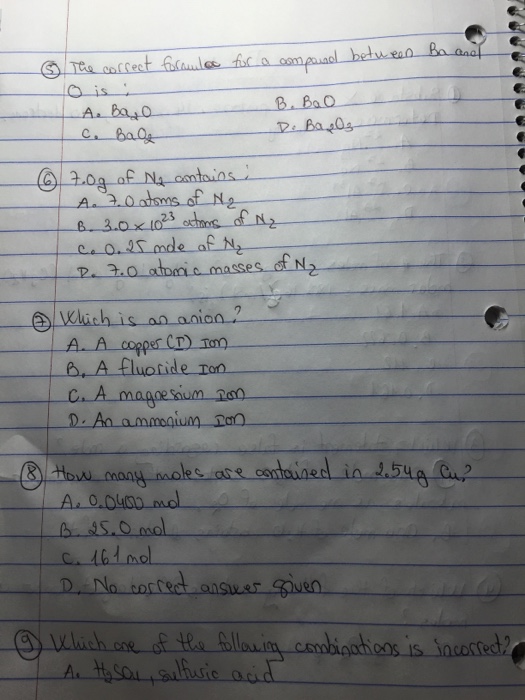 ⑤ The correct formulae for a compound between Ba and
O is :
A. Ba₂O B. BaO
C. BaO₂ D. Ba₂O₃
⑥ 7.0g of N₂ contains :
A. 7.0 atoms of N₂
B. 3.0 x 10²³ atoms of N₂
C. 0.25 mole of N₂
D. 7.0 atomic masses of N₂
⑦ Which is an anion ?
A. A copper (I) Ion
B. A fluoride Ion
C. A magnesium Ion
D. An ammonium Ion
⑧ How many moles are contained in 2.54g Cu?
A. 0.0400 mol
B. 25.0 mol
C. 161 mol
D. No correct answer given
⑨ Which one of the following combinations is incorrect?
A. H₂SO₄, sulfuric acid